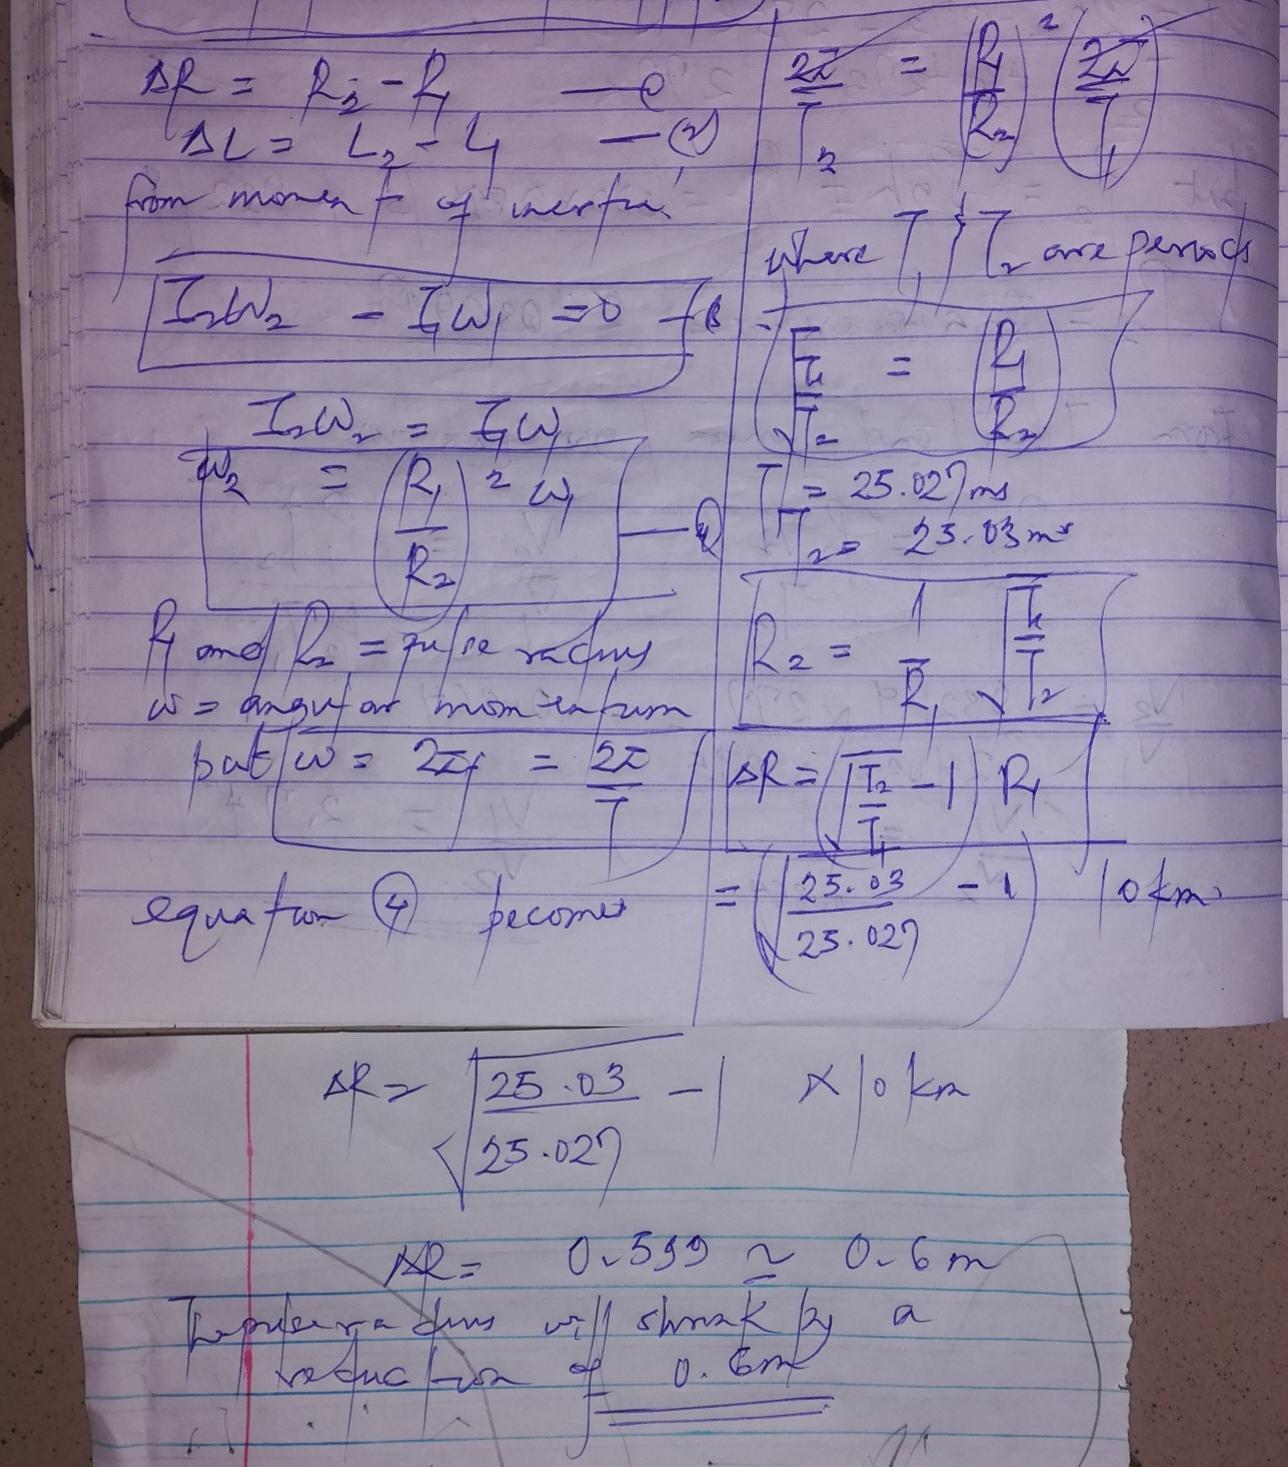 ΔR = R₂ - R₁ —
ΔL = L₂ - L₁ — (2)
from moment of inertia
I₂ω₂ - I₁ω₁ = 0
I₂ω₂ = I₁ω₁
ω₂ = (R₁/R₂)² ω₁ —
R₁ and R₂ = pulse radius
ω = angular momentum
put ω = 2πf = 2π/T
equation (4) becomes
2π/T₂ = (R₁/R₂)² (2π/T₁)
where T₁ & T₂ are periods
√(T₁/T₂) = (R₁/R₂)
T₁ = 25.027ms
T₂ = 25.03ms
R₂ = 1/R₁ √(T₁/T₂)
ΔR = (√(T₂/T₁) - 1) R₁
= (√(25.03/25.027) - 1) 10km
ΔR = √(25.03/25.027) - 1 × 10km
ΔR = 0.599 ≃ 0.6m
radius will shrink by a
reduction of 0.6m